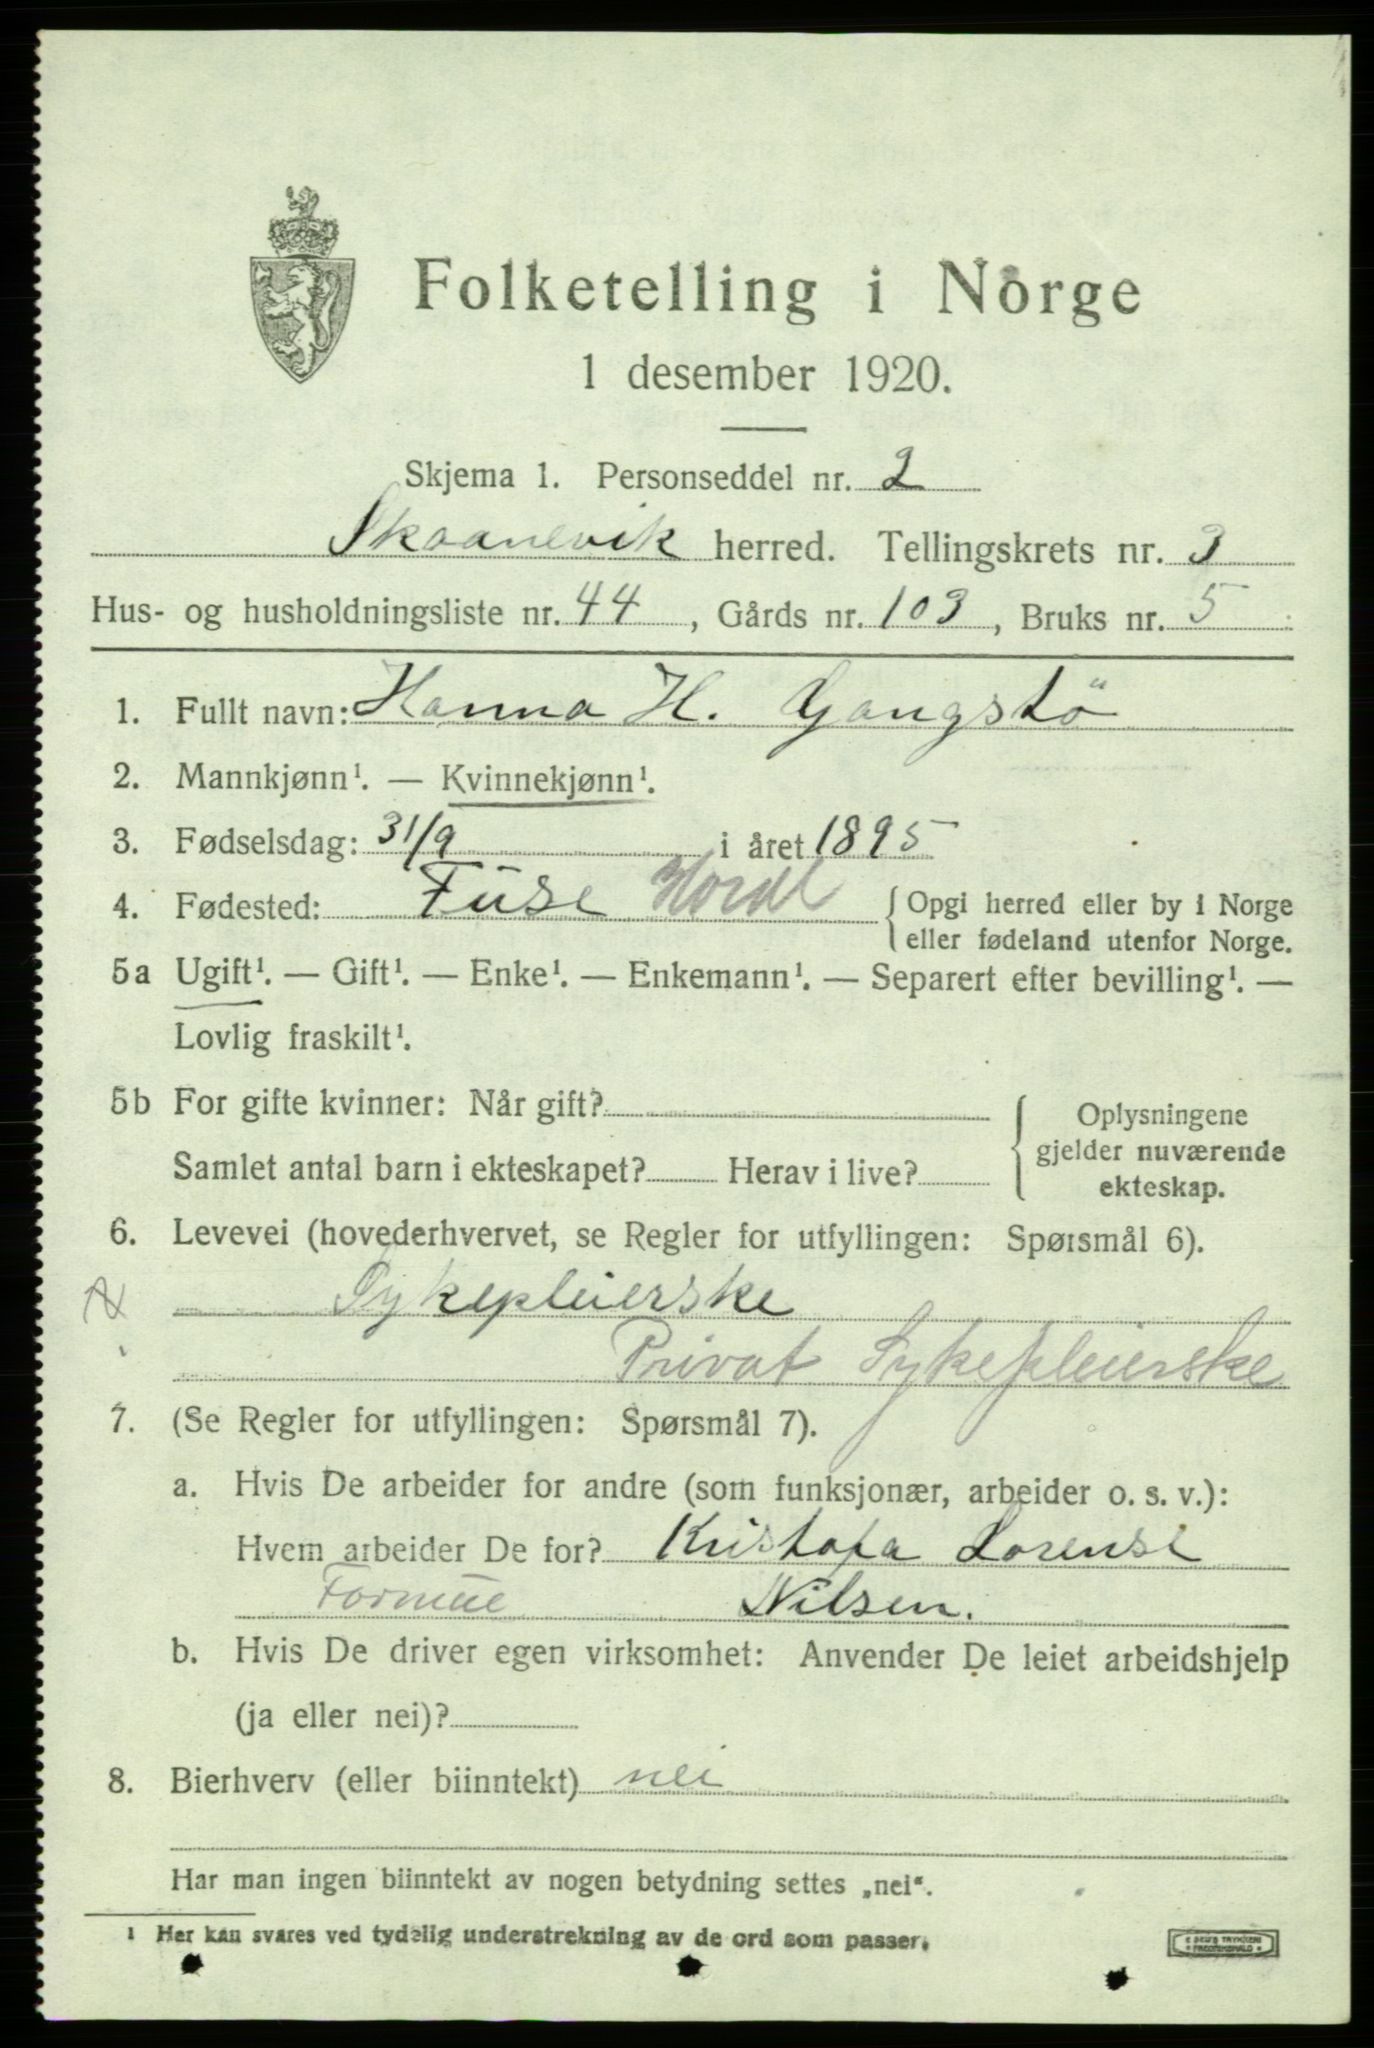 Folketelling i Norge
1 desember 1920.
Skjema 1. Personseddel nr. 2
Skaanevik herred. Tellingskrets nr. 3
Hus- og husholdningsliste nr. 44, Gårds nr. 103, Bruks nr. 5
1. Fullt navn: Hanna H. Gangstö
2. Mannkjønn¹. — Kvinnekjønn¹.
3. Fødselsdag: 31/9 i året 1895
4. Fødested: Fuse Hordl {Opgi herred eller by i Norge
eller fødeland utenfor Norge.
5a Ugift¹. — Gift¹. — Enke¹. — Enkemann¹. — Separert efter bevilling¹. —
Lovlig fraskilt¹.
5b For gifte kvinner: Når gift?
Samlet antal barn i ekteskapet? Herav i live?
Oplysningene
gjelder nuværende
ekteskap.
6. Levevei (hovederhvervet, se Regler for utfyllingen: Spørsmål 6).
Sykepleierske
Privat Sykepleierske
7. (Se Regler for utfyllingen: Spørsmål 7).
a. Hvis De arbeider for andre (som funksjonær, arbeider o. s. v.):
Hvem arbeider De for? Kristofa Lorense
Formue Nilsen.
b. Hvis De driver egen virksomhet: Anvender De leiet arbeidshjelp
(ja eller nei)?
8. Bierhverv (eller biinntekt) nei
Har man ingen biinntekt av nogen betydning settes „nei“.
¹ Her kan svares ved tydelig understrekning av de ord som passer.